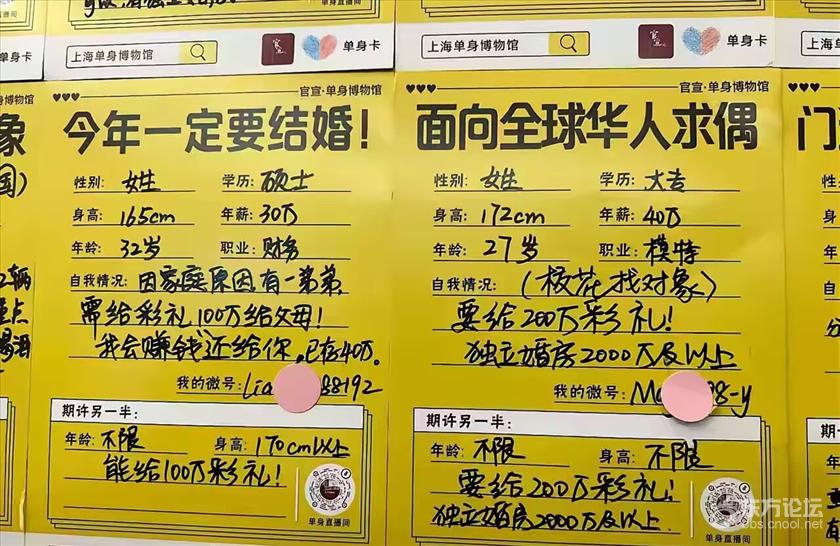 上海单身博物馆
单身卡
官宣·单身博物馆
今年一定要结婚！
性别：女性 学历：硕士
身高：165cm 年薪：30万
年龄：32岁 职业：财务
自我情况：因家庭原因有一弟弟，
需给彩礼100万给父母！
"我会赚钱"还给你，已存40万。
我的微号：Lia 88192
期许另一半：
年龄：不限 身高：170cm以上
能给100万彩礼！
单身直播间
上海单身博物馆
单身卡
官宣·单身博物馆
面向全球华人求偶
性别：女性 学历：大专
身高：172cm 年薪：40万
年龄：27岁 职业：模特
自我情况：（校花找对象）
要给200万彩礼！
独立婚房2000万及以上
我的微号：M 88-y
期许另一半：
年龄：不限 身高：不限
要给200万彩礼！
独立婚房2000万及以上.
单身直播间
东方论坛
bbs.cnool.net